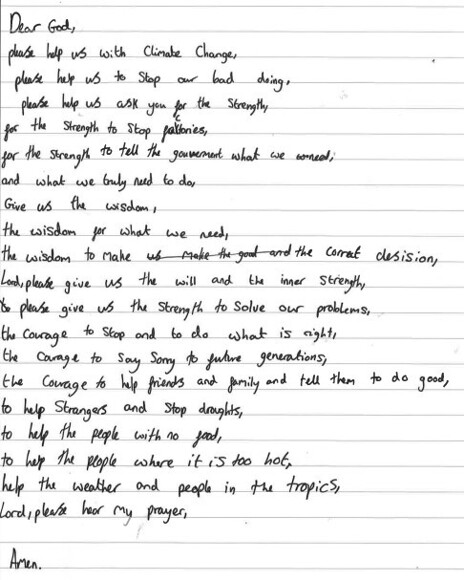 Dear God,
please help us with Climate Change,
please help us to Stop our bad doing,
please help us ask you for the Strength,
for the Strength to Stop factories,
for the Strength to tell the gouverment what we
and what we truly need to do,
Give us the wisdom,
the wisdom for what we need,
the wisdom to make us make the goat and the correct desision,
Lord, please give us the will and the inner Strength,
please give us the Strength to Solve our problems,
the Courage to Stop and to do what is right,
the Courage to Say Sorry to future generations,
the Courage to help friends and family and tell them to do good,
to help Strangers and Stop droughts,
to help the people with no food,
to help the people where it is too hot,
help the weather and people in the tropics,
Lord, please hear my prayer,
Amen.